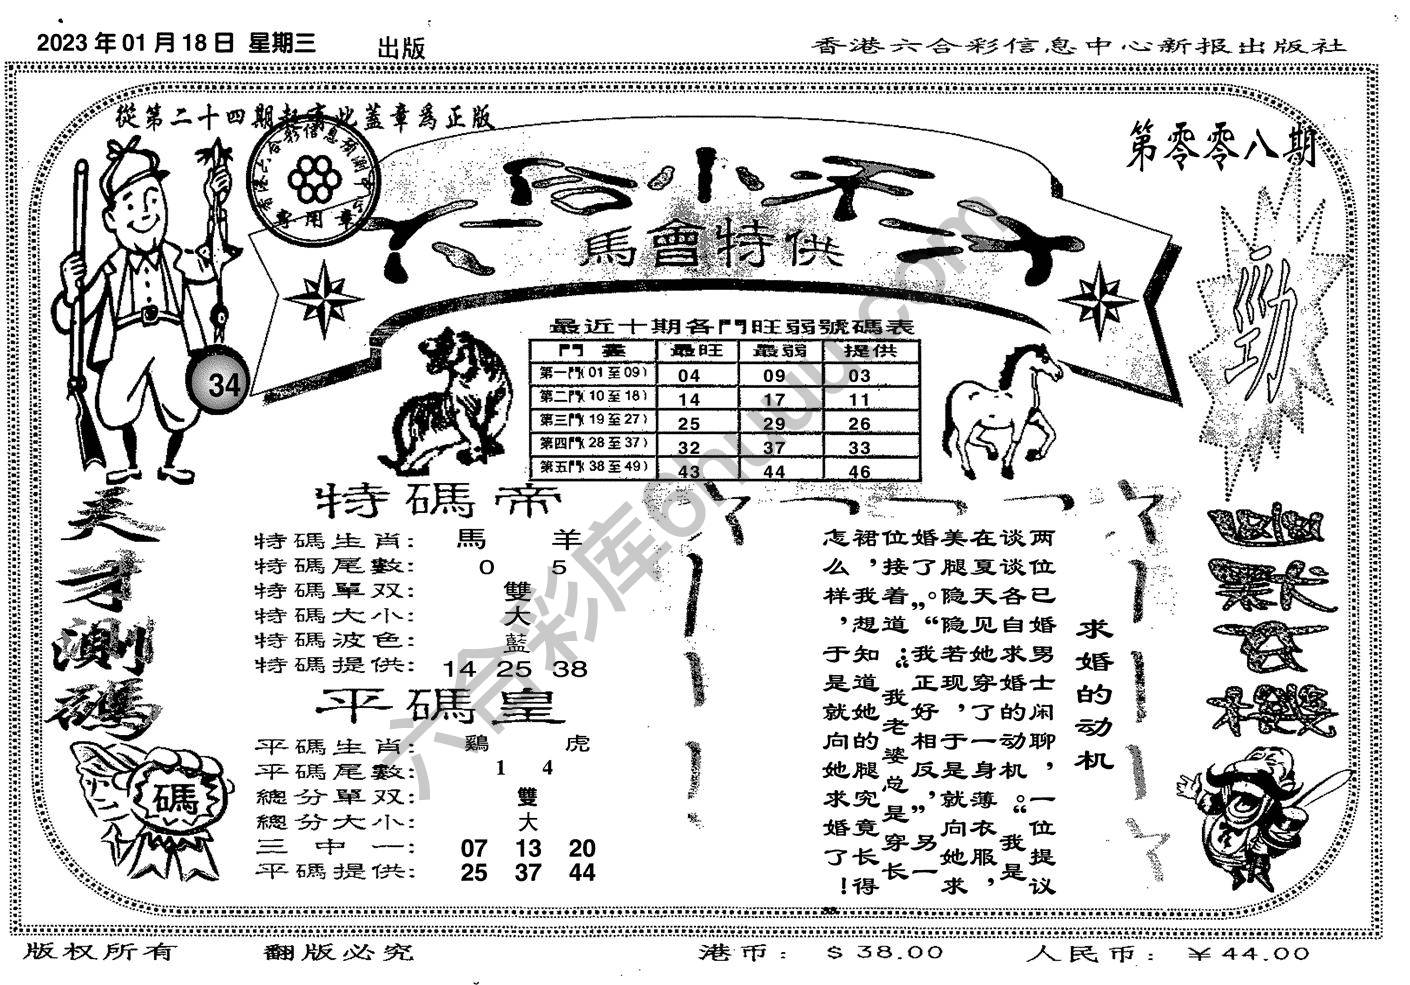 2023年01月18日 星期三 出版
香港六合彩信息中心新报出版社
從第二十四期起
此蓋章爲正版
專用章
第零零八期
馬會特供
勁
34
最近十期各門旺弱號碼表
門 最旺 最弱 提供
第一門(01至09) 04 09 03
第二門(10至18) 14 17 11
第三門(19至27) 25 29 26
第四門(28至37) 32 37 33
第五門(38至49) 43 44 46
天才測碼
碼
特碼帝
特碼生肖: 馬 羊
特碼尾數: 0 5
特碼單双: 雙
特碼大小: 大
特碼波色: 藍
特碼提供: 14 25 38
平碼皇
平碼生肖: 鷄 虎
平碼尾數: 1 4
總分單双: 雙
總分大小: 大
三中一: 07 13 20
平碼提供: 25 37 44
求婚的动机
两位已婚男士闲聊,一位提议
谈谈各自求婚的动机。“我是
在夏天见她穿了一身薄衣服,
美腿隐隐若现,于是就向她求
婚了。”“我正好相反”,另一
位接着道:“我老婆总是穿长
裙,我想知道她的腿究竟长得
怎么样,于是就向她求婚了!
六合彩库6huuu.com
版权所有
翻版必究
港币: $38.00
人民币: ¥44.00